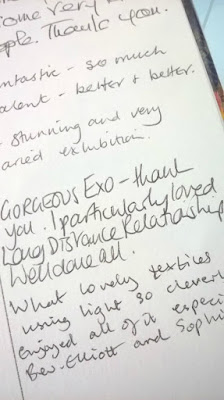 some very
ople. Thank you.
ntastic - so much
alent - better & better.
stunning and very
aried exhibition.
GORGEOUS EXO - thank
you. I particularly loved
Long Distance Relationship
Well done all.
What lovely textiles
using light so cleverly
Enjoyed all of it especi
Bev. Elliott and Sophi